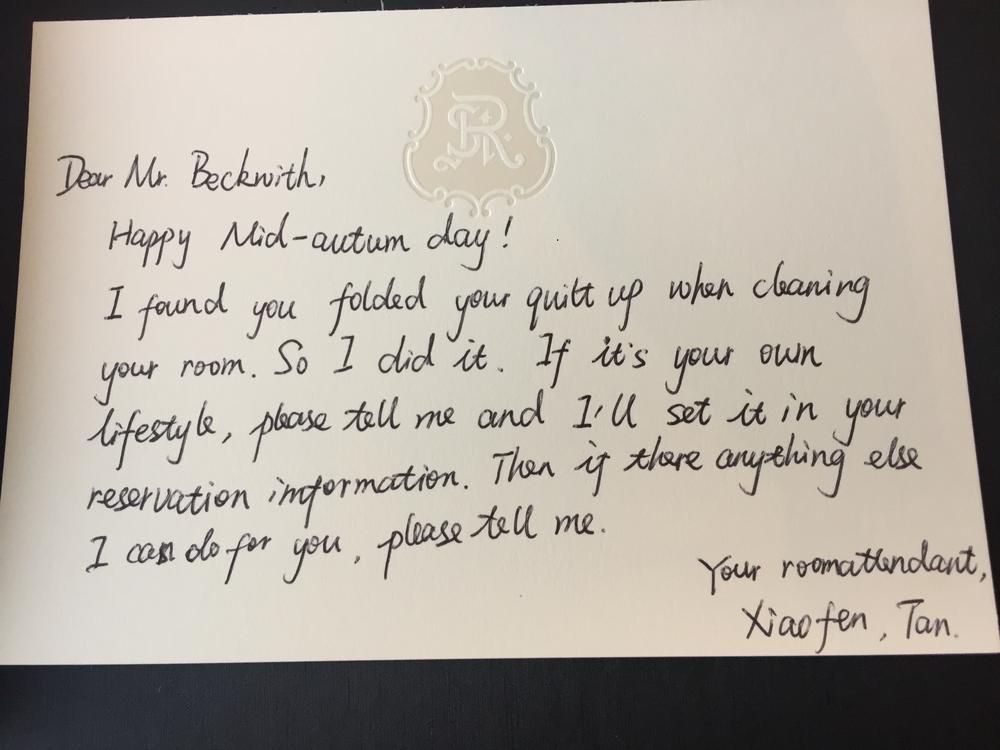 SR
Dear Mr. Beckwith,
Happy Mid-autum day!
I found you folded your quilt up when cleaning
your room. So I did it. If it's your own
lifestyle, please tell me and I'll set it in your
reservation information. Then if there anything else
I can do for you, please tell me.
Your roomattendant,
Xiaofen, Tan.